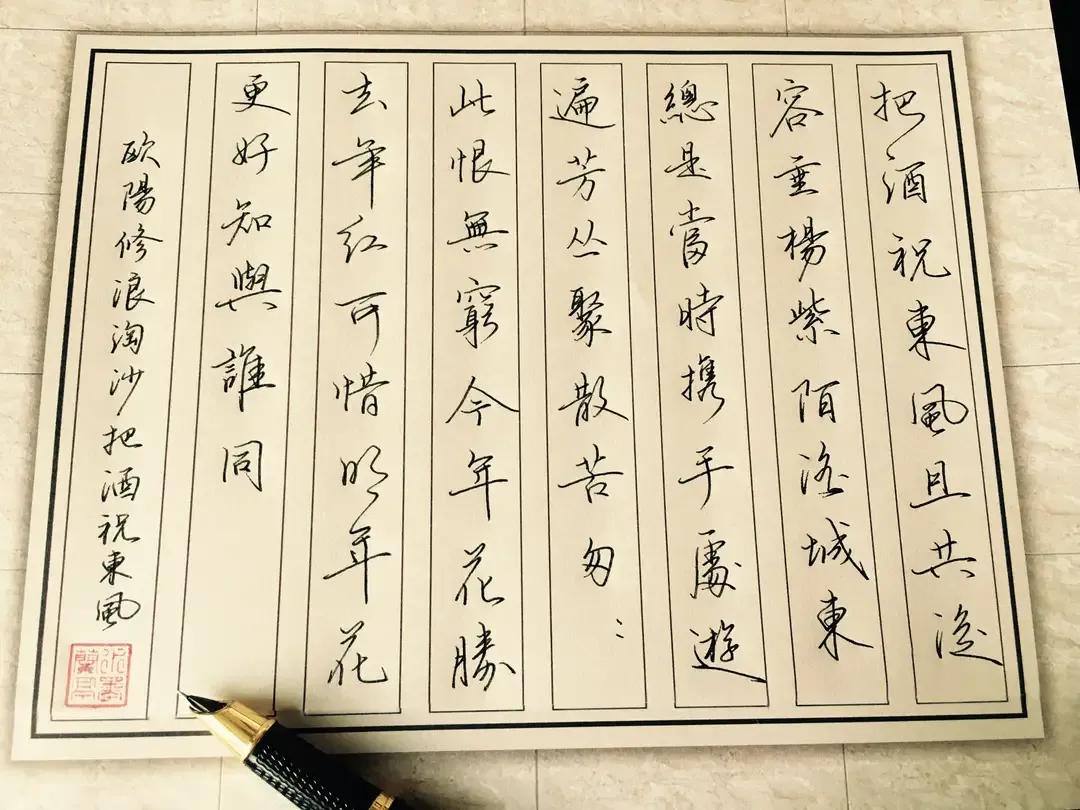 把酒祝東風且共從
容垂楊紫陌洛城東
總是當時携手處遊
遍芳丛聚散苦匆〻
此恨無窮今年花勝
去年紅可惜明年花
更好知與誰同
欧陽修浪淘沙把酒祝東風